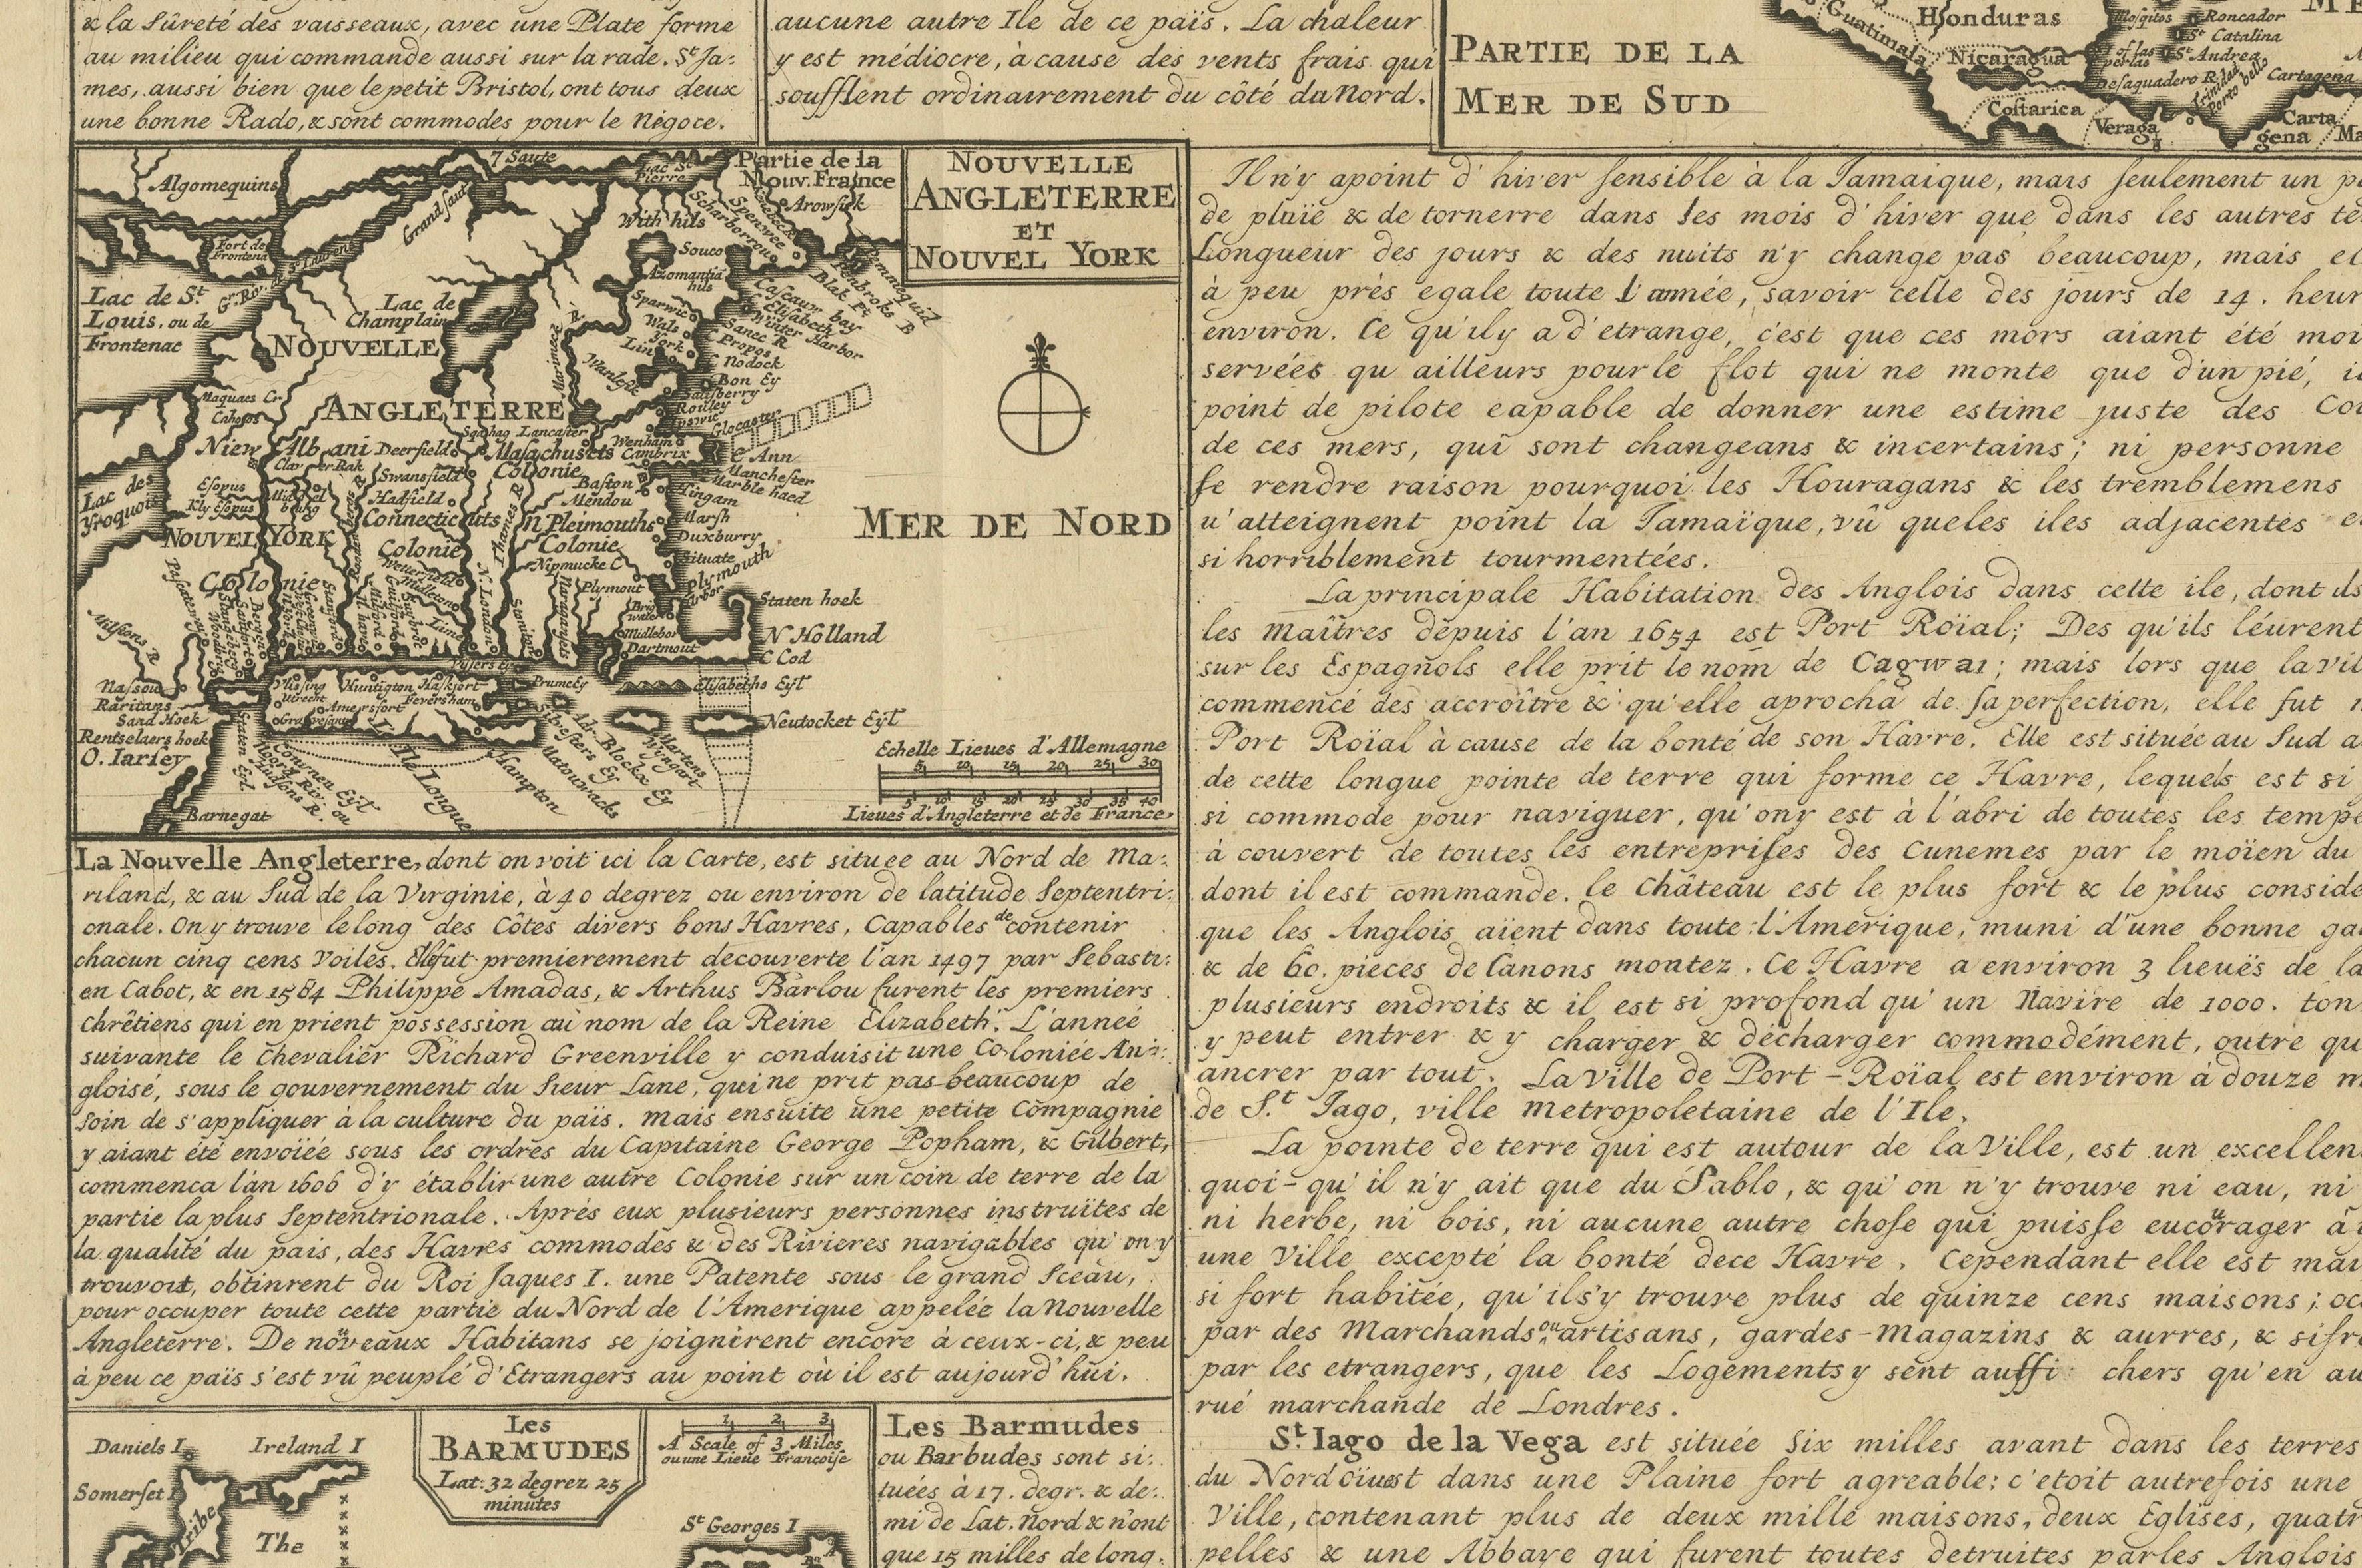 & la Sûreté des vaisseaux, avec une Plate forme
au milieu qui commande aussi sur la rade. St Ja-
mes, aussi bien que le petit Bristol, ont tous deux
une bonne Rado, & sont commodes pour le Négoce.
aucune autre Ile de ce païs. La chaleur
y est médiocre, à cause des vents frais qui
soufflent ordinairement du côté du Nord.
PARTIE DE LA
MER DE SUD
Guatimala
Honduras
Nicaragua
Costarica
Veraga
Mosqitos
Roncador
St Catalina
St Andrea
Desaquadero R.
Trinidad
Porto bello
Cartagena
Carta
gena
Ma
ME
NOUVELLE
ANGLETERRE
ET
NOUVEL YORK
Partie de la
Nouv. France
Algomequins
7 Saute
Lac St
Pierre
Grand saut
Arowsick
With hils
Scharborrou
Souco
Fort de
Frontena
Gr. Riv. de St Laurens
Lac de St.
Louis, ou de
Frontenac
Lac de
Champlain
Azomantiā
hils
Pemmequid
Penbroks B
Blak Pt
Cascauw bay
C Elisabeth
Winter Harbor
Sanc R
C Propos
C Nodock
Sparwic
Wals
York
Lin
NOUVELLE
ANGLETERRE
Bon Ey
Salsberry
Rouley
Ipswic
Glocaster
Maquaes Cr
Cahoos
Niew Albani
Claver Rak
Deerfield
Lancaster
Masachusets
Colonie
Wenham
Cambrix
C Ann
Manchester
Marble haed
Swansfield
Hadfield
Baston
Mendou
Hingam
Lac des
Yroquois
Esopus
Kly Esopus
Connecticuts
Colonie
Thames R
N Pleimouths
Colonie
Marsh
Duxburry
Situate
Plymouth
NOUVEL YORK
Colonie
Nipmucke C
Plymout
Middleton
Lime
N. London
Midlebor
Dartmout
Staten hoek
N Holland
C Cod
Milstons R
Nassou
Raritans
Sand Hoek
Rentselaers hoek
O. Iarsey
Barnegat
Visers Ey
Vlissing
Utrecht
Huntigton
Haskfort
Feversham
Amersfort
Gravesant
Prume Ey
Elisabeths Eyl
Neutocket Eyl
Staten Eyl
Conynen Eyl
Noord Riv: ou
Hudsons R.
La Ile Longue
Hampton
Matouwacks
Sibesters Ey
Adr-Blockx Ey
Martens
Wyngart
MER DE NORD
Echelle Lieues d'Allemagne
5 10 15 20 25 30
5 10 15 20 25 30 35 40
Lieues d'Angleterre et de France
La Nouvelle Angleterre, dont on voit ici la Carte, est situee au Nord de Ma-
riland, & au Sud de la Virginie, à 40 degrez ou environ de latitude Septentri-
onale. On y trouve le long des Côtes divers bons Havres, Capables de contenir
chacun cinq cens Voiles. Elle fut premierement decouverte l'an 1497 par Sebasti-
en Cabot, & en 1584 Philippe Amadas, & Arthus Barlou furent les premiers
Chrêtiens qui en prient possession au nom de la Reine Elizabeth. L'anneé
suivante le Chevalier Richard Greenville y conduisit une Coloniée An-
gloisé, sous le gouvernement du Sieur Lane, qui ne prit pas beaucoup de
soin de s'appliquer à la culture du païs. Mais ensuite une petite Compagnie
y aiant été envoïée sous les ordres du Capitaine George Popham, & Gilbert,
commenca l'an 1606 d'y établir une autre Colonie sur un coin de terre de la
partie la plus Septentrionale. Aprés eux plusieurs personnes instruites de
la qualité du pais, des Havres commodes & des Rivieres navigables qu'on y
trouvoit, obtinrent du Roi Jaques I. une Patente sous le grand Sceau,
pour occuper toute cette partie du Nord de l'Amerique appelée la Nouvelle
Angleterre. De nouveaux Habitans se joignirent encore à ceux-ci, & peu
à peu ce païs s'est vû peuplé d'Etrangers au point où il est aujourd'hui.
Les
BARMUDES
Lat: 32 degrez 25
minutes
1 2 3
A Scale of 3 Miles
ou une Lieue Françoise
Daniels I
Ireland I
Somerset I
Tribe
The
St Georges I
Les Barmudes
ou Barbudes sont si-
tuées à 17. degr. & de-
mi de Lat. Nord & n'ont
que 15 milles de long.
Il n'y a point d'hiver sensible à la Jamaique, mais seulement un p
de pluïe & de tornerre dans les mois d'hiver que dans les autres te
Longueur des jours & des nuits n'y change pas beaucoup, mais el
à peu près egale toute l'année, savoir celle des jours de 14. heur
environ. Ce qu'il y a d'etrange, c'est que ces mors aiant été moi
servées qu'ailleurs pour le flot qui ne monte que d'un pié, i
point de pilote capable de donner une estime juste des Co
de ces mers, qui sont changeans & incertains; ni personne
se rendre raison pourquoi les Houragans & les tremblemens
u'atteignent point la Jamaïque, vû que les iles adjacentes e
si horriblement tourmentées.
La principale Habitation des Anglois dans cette ile, dont ils
les maîtres depuis l'an 1654 est Port Roïal; Des qu'ils l'eurent
sur les Espagnols elle prit le nom de Cagwai; mais lors que la vil
commencé des accroître & qu'elle aprocha de sa perfection, elle fut
Port Roïal à cause de la bonté de son Havre. Elle est située au Sud
de cette longue pointe de terre qui forme ce Havre, lequels est si
si commode pour naviguer, qu'on y est à l'abri de toutes les tempe
à couvert de toutes les entreprises des Cunemes par le moïen du
dont il est commande. le Château est le plus fort & le plus conside
que les Anglois aïent dans toute l'Amerique, muni d'une bonne ga
& de 60. pieces de Canons montez. Ce Havre a environ 3 lieuës de la
plusieurs endroits & il est si profond qu'un Navire de 1000. ton
y peut entrer & y charger & décharger commodément, outre qu
ancrer par tout. La Ville de Port-Roïal est environ à douze m
de S.t Jago, ville metropoletaine de l'Ile.
La pointe de terre qui est autour de la Ville, est un excellen
quoi-qu'il n'y ait que du Sablo, & qu'on n'y trouve ni eau, ni
ni herbe, ni bois, ni aucune autre chose qui puisse eucourager à
une Ville excepté la bonté de ce Havre. Cependant elle est mai
si fort habitée, qu'ils'y trouve plus de quinze cens maisons; oc
par des Marchands ou artisans, gardes-magazins & aurres, & si fr
par les etrangers, que les Logements y sent aussi chers qu'en au
rué marchande de Londres.
S.t Iago de la Vega est située six milles avant dans les terres
du Nord oüest dans une Plaine fort agreable: c'etoit autrefois une
Ville, contenant plus de deux mille maisons, deux Eglises, quatr
pelles & une Abbaye qui furent toutes detruites par les Anglois